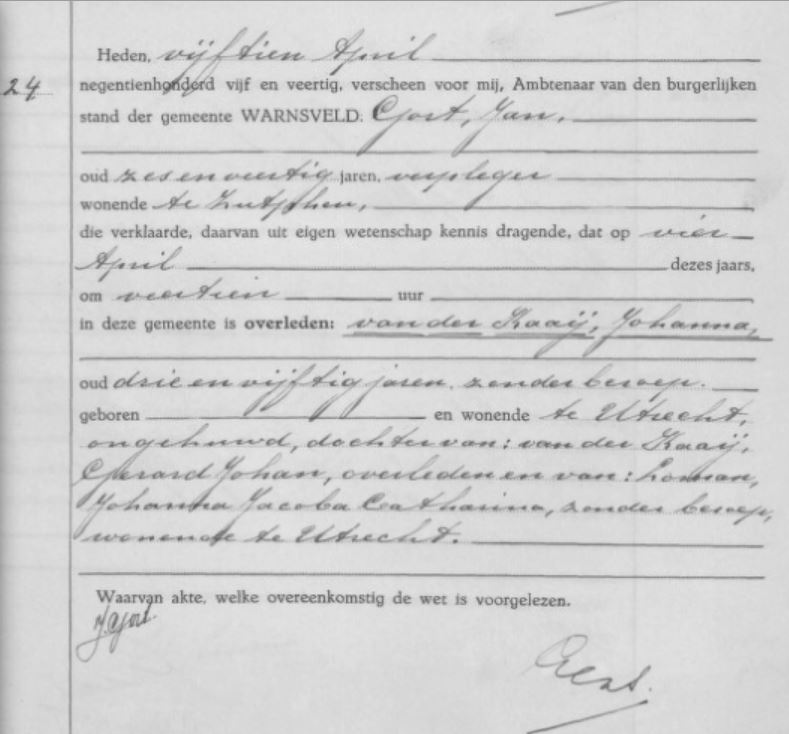 Heden, vijftien April
24
negentienhonderd vijf en veertig, verscheen voor mij, Ambtenaar van den burgerlijken
stand der gemeente WARNSVELD: Gort, Jan,
oud zes en veertig jaren, verpleger
wonende te Zutphen,
die verklaarde, daarvan uit eigen wetenschap kennis dragende, dat op vier
April dezes jaars,
om veertien uur
in deze gemeente is overleden: van der Kaaij, Johanna,
oud drie en vijftig jaren, zonder beroep.
geboren en wonende te Utrecht,
ongehuwd, dochter van: van der Kaaij,
Gerard Johan, overleden en van: Loman,
Johanna Jacoba Catharina, zonder beroep,
wonende te Utrecht.
Waarvan akte, welke overeenkomstig de wet is voorgelezen.
J. Gort